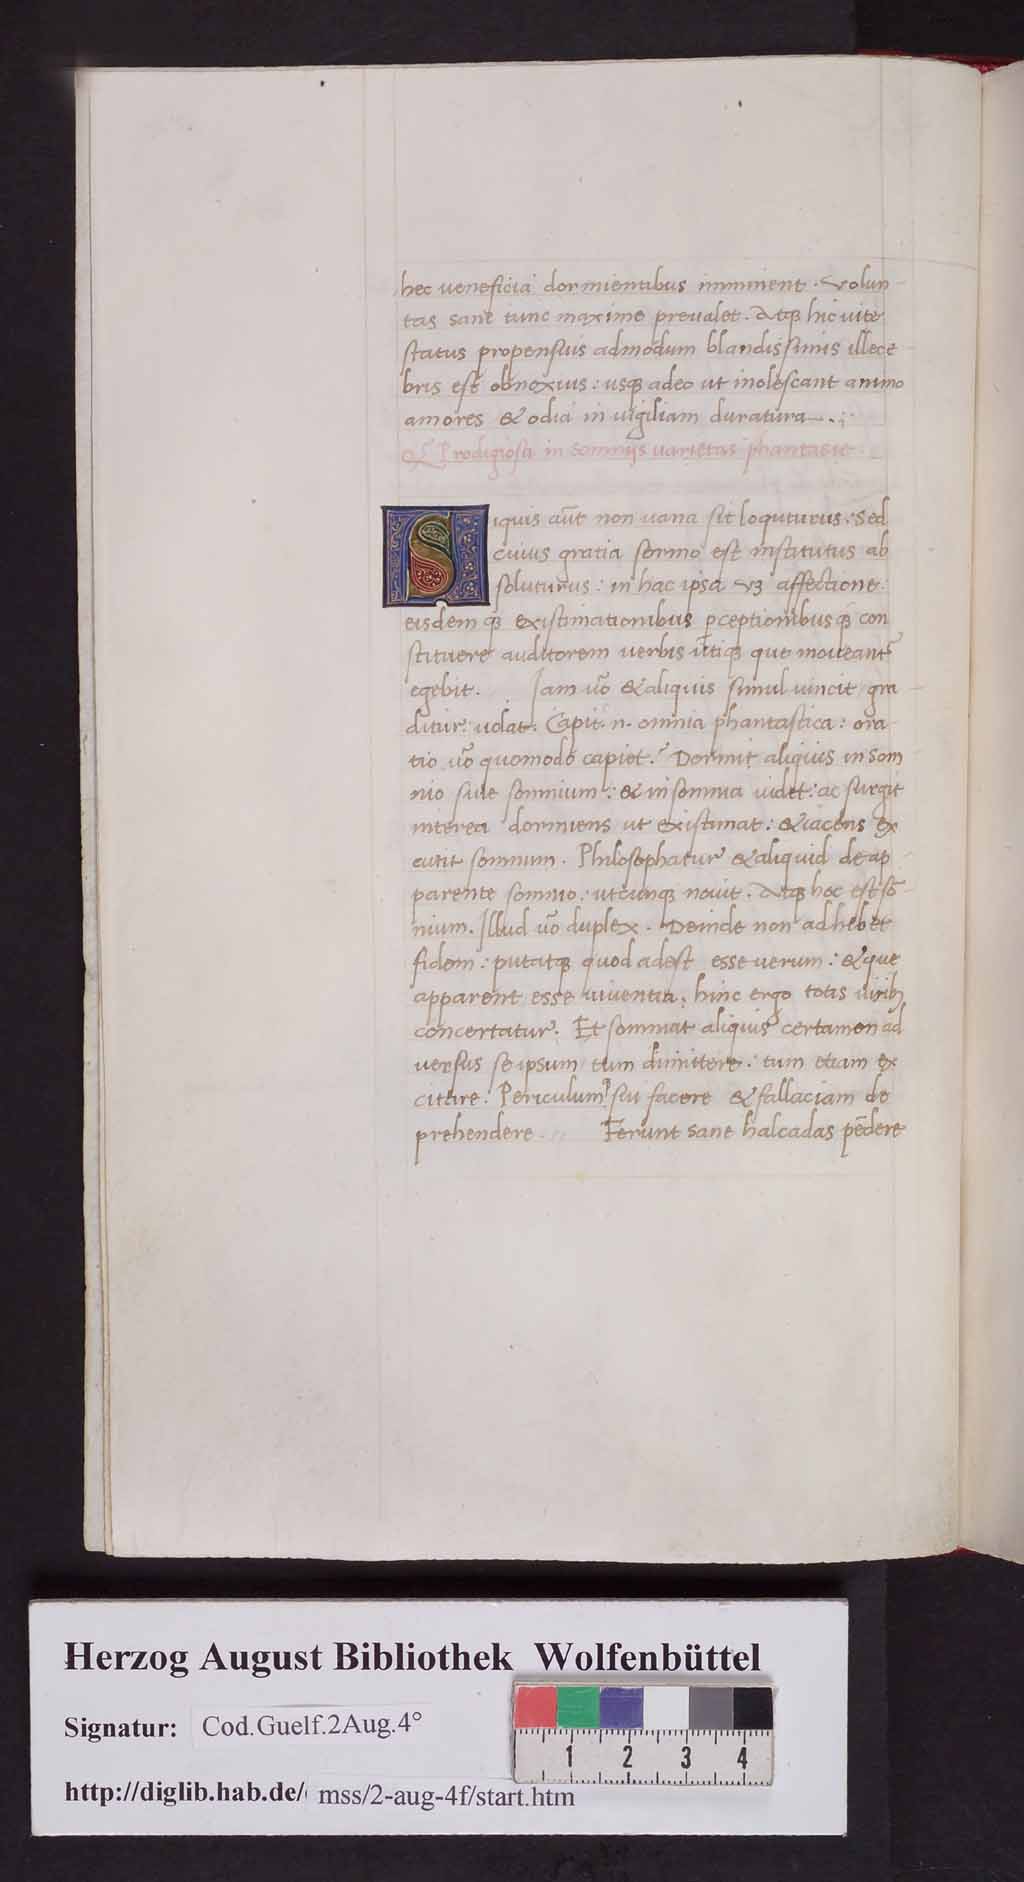 hec veneficia dormientibus imminent. volun-
tas sane tunc maxime prevalet. Atq; hic uite
status propensius admodum blandissimis illece-
bris est obnoxius: usq; adeo ut inolescant animo
amores & odia in vigiliam duratura
Prodigiosa in somnijs uarietas phantasie.
Siquis aut̄ non uana sit loquuturus: Sed
cuius gratia sermo est institutus ab
soluturus: in hac ipsa uȝ affectione.
eisdemq; existimationibus ꝑceptionibusq; con
stituere auditorem verbis utiq; que moueant
egebit. Iam uo̅ & aliquis simul uincit gra-
ditur: uolat: Capit .n. omnia phantastica: ora-
tio uo̅ quomodo capiet? Dormit aliquis in som
nio siue somnium: & insomnia uidet: ac surgit
interea dormiens ut existimat: & iacens ex
cutit somnum. Philosophatur & aliquid de ap-
parente somnio: utcunq; nouit. Atq; hoc est so̅-
nium. Illud uo̅ duplex. Deinde non adhibet
fidem: putatq; quod adest esse uerum: & que
apparent esse uiuentia: hinc ergo totis uirib;
concertatur. Et somniat aliquis certamen ad
versus se ipsum tum dimittere: tum etiam ex
citare: Periculum sui facere & fallaciam de
prehendere. Ferunt sane halcadas pe̅dere
Herzog August Bibliothek Wolfenbüttel
Signatur: Cod.Guelf.2Aug.4°
http://diglib.hab.de/ mss/2-aug-4f/start.htm
1 2 3 4